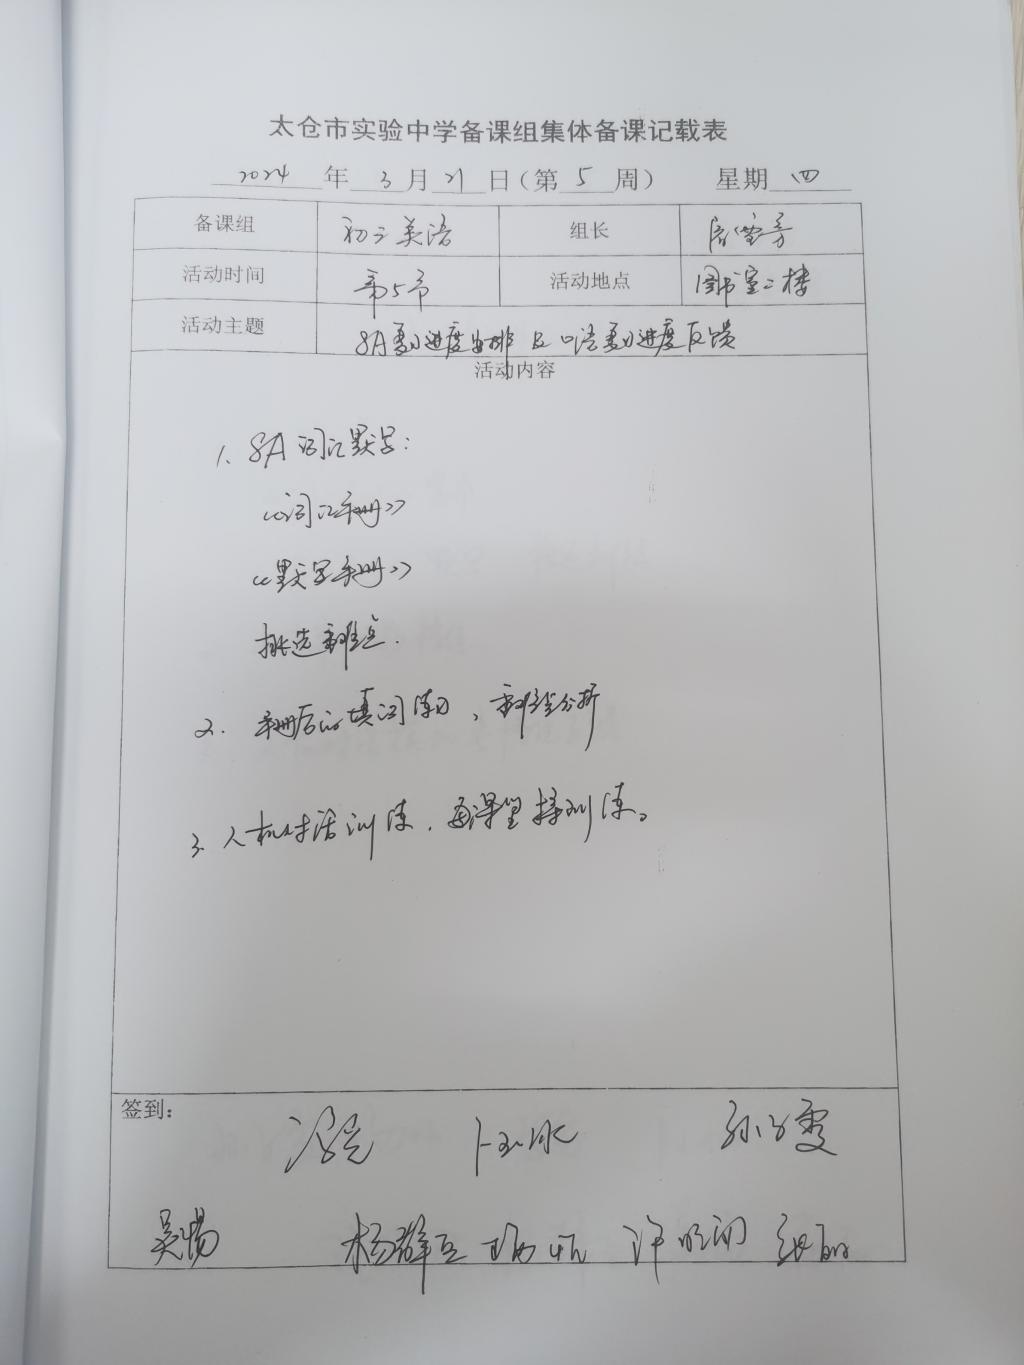 太仓市实验中学备课组集体备课记载表
2024 年 3 月 21 日（第 5 周） 星期 四
备课组 初三英语 组长
活动时间 第5节 活动地点 图书室二楼
活动主题 8A复习进度安排 及 口语复习进度反馈
活动内容
1、8A 词汇默写：
《词汇手册》
《默写手册》
挑选重难点.
2. 手册后的填词练习，重难点分析
3. 人机对话训练，每课堂 训练。
签到：
卞玉冰 孙子雯
吴旸 杨群